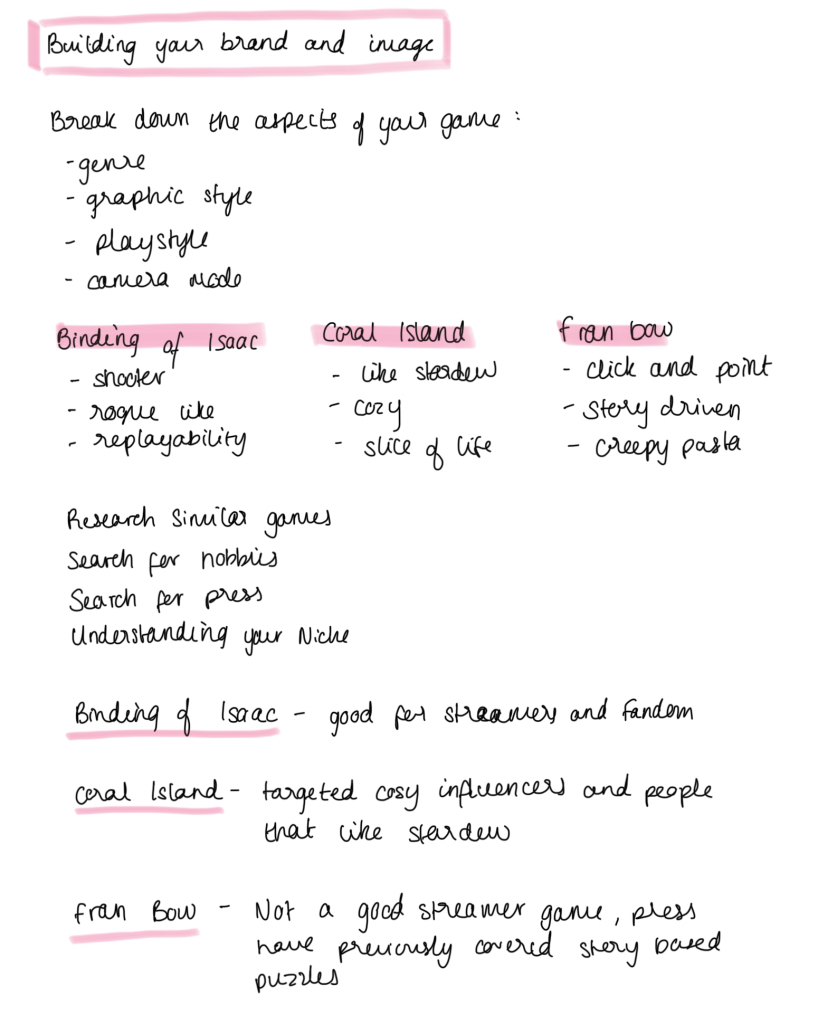 Building your brand and image
Break down the aspects of your game :
- genre
- graphic style
- playstyle
- camera mode
Binding of Isaac
- shooter
- rogue like
- replayability
Coral Island
- like stardew
- cozy
- slice of life
fran bow
- click and point
- story driven
- creepy pasta
Research Similar games
Search for hobbies
Search for press
Understanding your Niche
Binding of Isaac - good for streamers and fandom
Coral Island - targeted cosy influencers and people
that like stardew
fran Bow - Not a good streamer game, press
have previously covered story based
puzzles